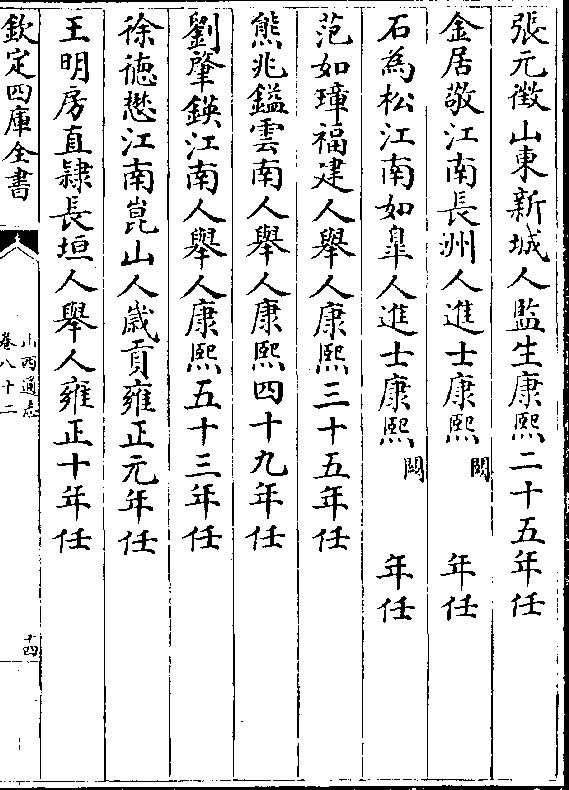 張元徴山東新城人監生康熙二十五年任
金居敬江南長洲人進士康熙闕年任
石為松江南如臯人進士康熙闕年任
范如璋福建人舉人康熙三十五年任
熊兆鎰雲南人舉人康熙四十九年任
劉肇鍈江南人舉人康熙五十三年任
徐徳懋江南崑山人歲貢雍正元年任
王明房直隸長垣人舉人雍正十年任
欽定四庫全書
山西通志
卷八十二
十四